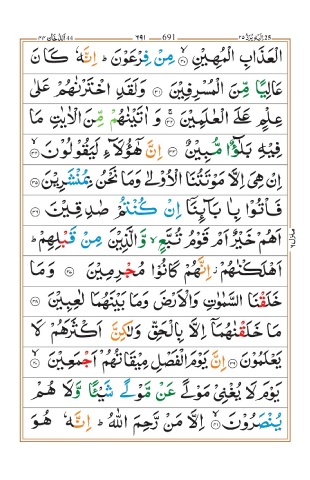 الدخان ٤٤ ٦٩١ 691 اليه يرد ٢٥
الْعَذَابِ الْمُهِيْنِ ۙ﴿۳۰﴾ مِنْ فِرْعَوْنَ ؕ اِنَّهٗ كَانَ
عَالِيًا مِّنَ الْمُسْرِفِيْنَ ﴿۳۱﴾ وَلَقَدِ اخْتَرْنٰهُمْ عَلٰى
عِلْمٍ عَلَى الْعٰلَمِيْنَ ۚ﴿۳۲﴾ وَاٰتَيْنٰهُمْ مِّنَ الْاٰيٰتِ مَا
فِيْهِ بَلٰٓـؤٌا مُّبِيْنٌ ﴿۳۳﴾ اِنَّ هٰٓؤُلَآءِ لَيَقُوْلُوْنَ ۙ﴿۳۴﴾
اِنْ هِىَ اِلَّا مَوْتَتُنَا الْاُوْلٰى وَمَا نَحْنُ بِمُنْشَرِيْنَ ﴿۳۵﴾
فَاْتُوْا بِاٰبَآئِنَاۤ اِنْ كُنْتُمْ صٰدِقِيْنَ ﴿۳۶﴾
اَهُمْ خَيْرٌ اَمْ قَوْمُ تُبَّعٍ ۙ وَّالَّذِيْنَ مِنْ قَبْلِهِمْ ؕ
اَهْلَكْنٰهُمْ ؗ اِنَّهُمْ كَانُوْا مُجْرِمِيْنَ ﴿۳۷﴾ وَمَا
خَلَقْنَا السَّمٰوٰتِ وَالْاَرْضَ وَمَا بَيْنَهُمَا لٰعِبِيْنَ ﴿۳۸﴾
مَا خَلَقْنٰهُمَاۤ اِلَّا بِالْحَقِّ وَلٰكِنَّ اَكْثَرَهُمْ لَا
يَعْلَمُوْنَ ﴿۳۹﴾ اِنَّ يَوْمَ الْفَصْلِ مِيْقَاتُهُمْ اَجْمَعِيْنَ ۙ﴿۴۰﴾
يَوْمَ لَا يُغْنِىْ مَوْلًى عَنْ مَّوْلًى شَيْـًٔا وَّلَا هُمْ
يُنْصَرُوْنَ ۙ﴿۴۱﴾ اِلَّا مَنْ رَّحِمَ اللّٰهُ ؕ اِنَّهٗ هُوَ
منزل ٦